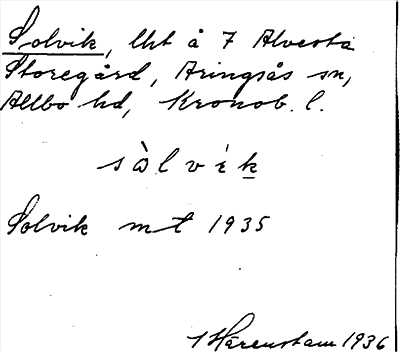 Solvik, lht å 7 Alvesta
Storegård, Aringsås sn,
Allbo hd, Kronob. l.
sàlvik
Solvik mt 1935
Härenstam 1936